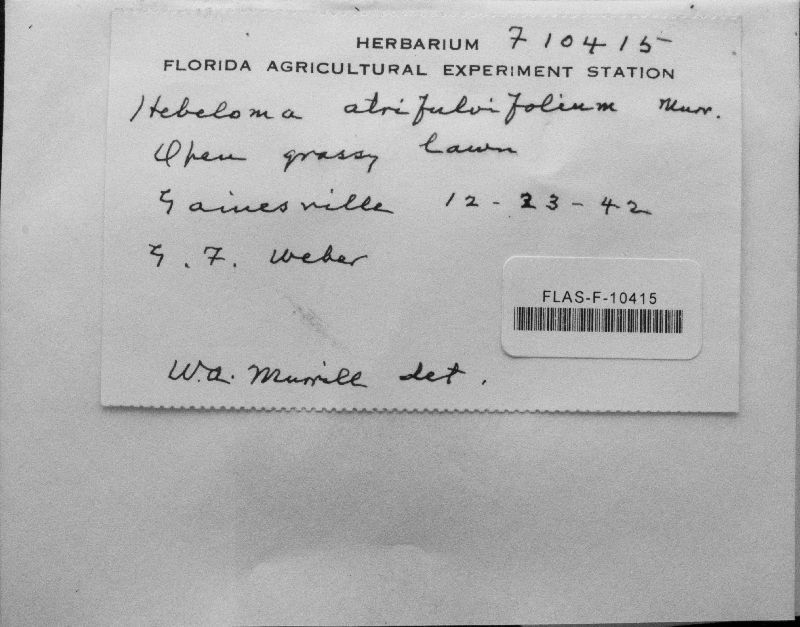 HERBARIUM F10415
FLORIDA AGRICULTURAL EXPERIMENT STATION
Hebeloma atrifulvifolium Murr.
Open grassy lawn
Gainesville 12-23-42
G. F. Weber
FLAS-F-10415
W.A. Murrill det.